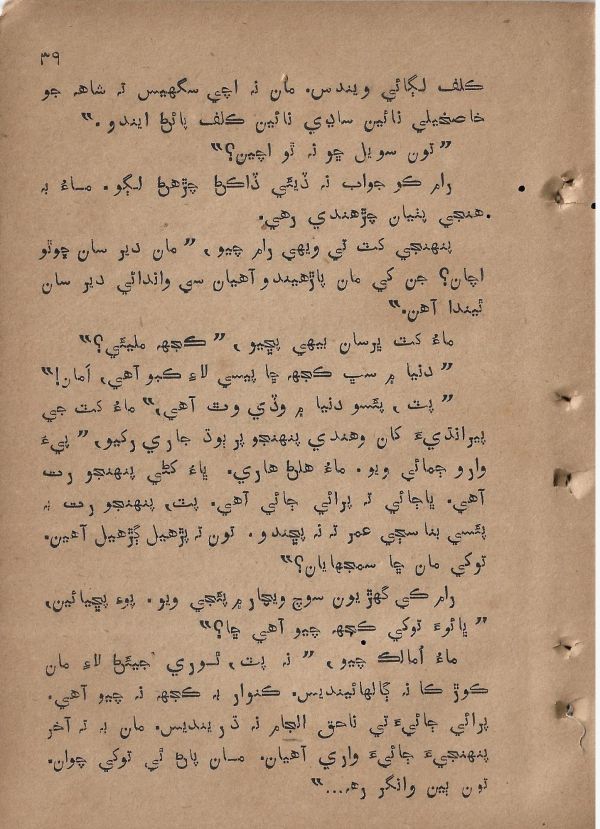 ٣٩
ڪلف لڳائي ويندس. مان نہ اچي سگهيس تہ شاھہ جو
خاصخيلي تائين ساڍي تائين ڪلف پائڻ ايندو."
"تون سويل ڇو نہ ٿو اچين؟"
رام ڪو جواب نہ ڏيئي ڏاڪڻ چڙهڻ لڳو. ماءُ بہ
هنجي پٺيان چڙهندي رهي.
پنهنجي کٽ تي ويهي رام چيو، "مان دير سان ڇوٿو
اچان؟ جن کي مان پاڙهيندو آهيان سي واندائي دير سان
ٿيندا آهن."
ماءُ کٽ ڀرسان بيهي پڇيو، "ڪجهہ مليئي؟"
"دنيا ۾ سڀ ڪجهہ ڇا پيسي لاءِ ڪبو آهي، اَمان!"
"پٽ، پئسو دنيا ۾ وڏي وٿ آهي،" ماءُ کٽ جي
پيرانديءَ کان وهندي پنهنجو پر ٻوڌ جاري رکيو، "پيءُ
وارو ڄمائي ويو. ماءُ هلڻ هاري. ڀاءُ ڪڻي پنهنجو رت
آهي. ڀاڄائي تہ پرائي ڄائي آهي. پٽ، پنهنجو رت بہ
پئسي بنا سڄي عمر تہ نہ پڇندو. تون تہ پڙهيل ڳڙهيل آهين.
توکي مان ڇا سمجهايان؟"
رام کي گهڙيون سوچ ويچار ۾ پئجي ويو. پوءِ پڇيائين،
"ڀائوءَ توکي ڪجهہ چيو آهي ڇا؟"
ماءُ اُمالڪ چيو، "نہ پٽ، ٿوري جيئڻ لاءِ مان
ڪوڙ ڪا نہ ڳالهائينديس. ڪنوار بہ ڪجهہ نہ چيو آهي.
پرائي ڄائيءَ تي ناحق الجام نہ ڌرينديس. مان بہ تہ آخر
پنهنجيءَ ڄائيءَ واري آهيان. مان پاڻ ئي توکي چوان.
تون ٻين وانگر رھہ...."